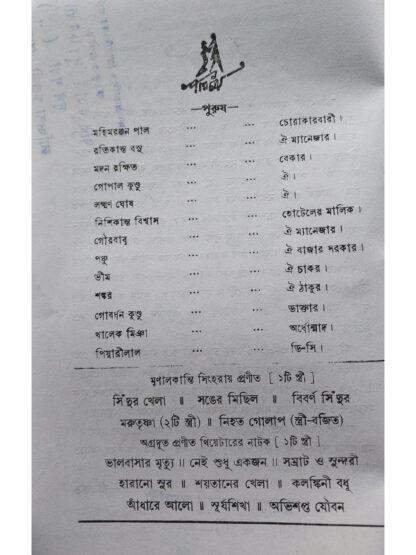 পরিচয়
—পুরুষ—
মহিমরঞ্জন পাল ... ... চোরাকারবারী।
রতিকান্ত বসু ... ... ঐ ম্যানেজার।
মদন রক্ষিত ... ... বেকার।
গোপাল কুন্ডু ... ... ঐ।
লক্ষ্মণ ঘোষ ... ... ঐ।
নিশিকান্ত বিশ্বাস ... ... হোটেলের মালিক।
গৌরবাবু ... ... ঐ ম্যানেজার।
পঞ্চু ... ... ঐ বাজার সরকার।
ভীম ... ... ঐ চাকর।
শঙ্কর ... ... ঐ ঠাকুর।
গোবর্ধন কুন্ডু ... ... ডাক্তার।
খালেক মিঞা ... ... অর্ধোন্মাদ।
পিয়ারীলাল ... ... ডি-সি।
মৃণালকান্তি সিংহরায় প্রণীত [ ১টি স্ত্রী ]
সিঁথুর খেলা ॥ সঙের মিছিল ॥ বিবর্ণ সিঁথুর
মরুতৃষ্ণা (২টি স্ত্রী) ॥ নিহত গোলাপ (স্ত্রী-বর্জিত)
অগ্রদূত প্রণীত থিয়েটারের নাটক [ ১টি স্ত্রী ]
ভালবাসার মৃত্যু ॥ নেই শুধু একজন ॥ সম্রাট ও সুন্দরী
হারানো সুর ॥ শয়তানের খেলা ॥ কলঙ্কিনী বধূ
আঁধারে আলো ॥ সূর্যশিখা ॥ অভিশপ্ত যৌবন